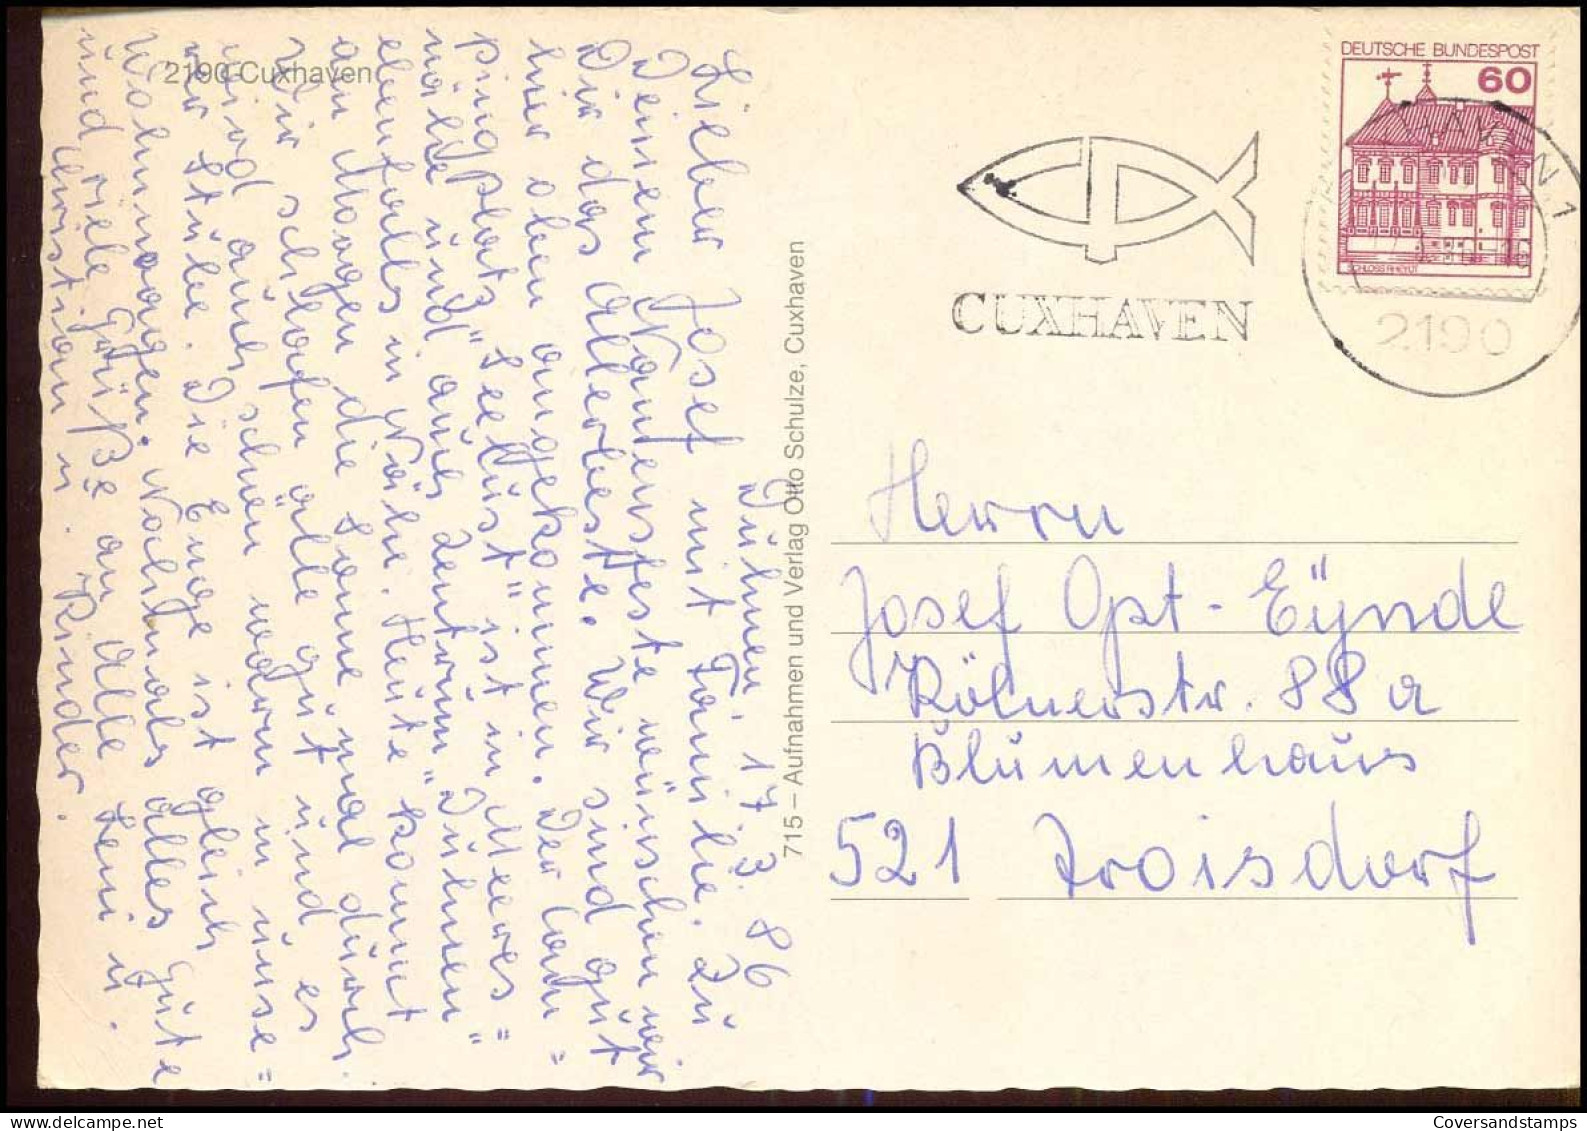 2190 Cuxhaven
Duhnen, 17.3.86
Lieber Josef mit Familie. Zu
Deinem Namensfeste wünschen wir
Dir das Allerbeste. Wir sind gut
hier oben angekommen. Der Cam=
pingplatz "Seelust" ist in Meeres=
nähe und auch Zentrum "Duhnen"
ebenfalls in Nähe. Heute kommt
am Morgen die Sonne mal durch.
Wir schlafen alle gut und es
wird auch schön warm in unse=
rer Stube. Die Enge ist gleich
Wohnwagen. Nochmals alles Gute
und viele Grüße an Alle Leni u.
Christian u. Kinder.
715 – Aufnahmen und Verlag Otto Schulze, Cuxhaven
CUXHAVEN
DEUTSCHE BUNDESPOST
60
SCHLOSS RHEYDT
2190
Herrn
Josef Opt-Eÿnde
Kölnerstr. 88a
Blumenhaus
521 Troisdorf
Coversandstamps